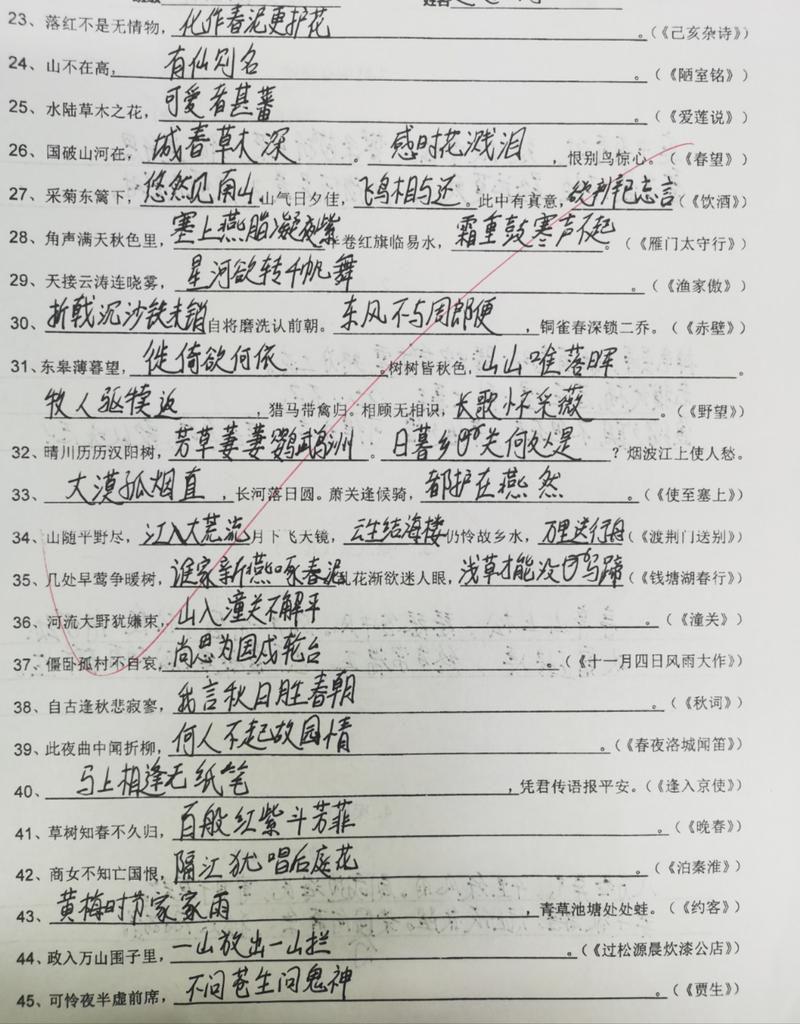 23、落红不是无情物，化作春泥更护花。（《己亥杂诗》）
24、山不在高，有仙则名。（《陋室铭》）
25、水陆草木之花，可爱者甚蕃。（《爱莲说》）
26、国破山河在，城春草木深。感时花溅泪，恨别鸟惊心。（《春望》）
27、采菊东篱下，悠然见南山山气日夕佳，飞鸟相与还。此中有真意，欲辨已忘言（《饮酒》）
28、角声满天秋色里，塞上燕脂凝夜紫半卷红旗临易水，霜重鼓寒声不起。（《雁门太守行》）
29、天接云涛连晓雾，星河欲转千帆舞。（《渔家傲》）
30、折戟沉沙铁未销自将磨洗认前朝。东风不与周郎便，铜雀春深锁二乔。（《赤壁》）
31、东皋薄暮望，徙倚欲何依。树树皆秋色，山山唯落晖。
牧人驱犊返，猎马带禽归。相顾无相识，长歌怀采薇。（《野望》）
32、晴川历历汉阳树，芳草萋萋鹦鹉洲。日暮乡关何处是？烟波江上使人愁。
33、大漠孤烟直，长河落日圆。萧关逢候骑，都护在燕然。（《使至塞上》）
34、山随平野尽，江入大荒流月下飞天镜，云生结海楼仍怜故乡水，万里送行舟（《渡荆门送别》）
35、几处早莺争暖树，谁家新燕啄春泥乱花渐欲迷人眼，浅草才能没马蹄（《钱塘湖春行》）
36、河流大野犹嫌束，山入潼关不解平。（《潼关》）
37、僵卧孤村不自哀，尚思为国戍轮台。（《十一月四日风雨大作》）
38、自古逢秋悲寂寥，我言秋日胜春朝。（《秋词》）
39、此夜曲中闻折柳，何人不起故园情。（《春夜洛城闻笛》）
40、马上相逢无纸笔，凭君传语报平安。（《逢入京使》）
41、草树知春不久归，百般红紫斗芳菲。（《晚春》）
42、商女不知亡国恨，隔江犹唱后庭花。（《泊秦淮》）
43、黄梅时节家家雨，青草池塘处处蛙。（《约客》）
44、政入万山围子里，一山放出一山拦。（《过松源晨炊漆公店》）
45、可怜夜半虚前席，不问苍生问鬼神。（《贾生》）